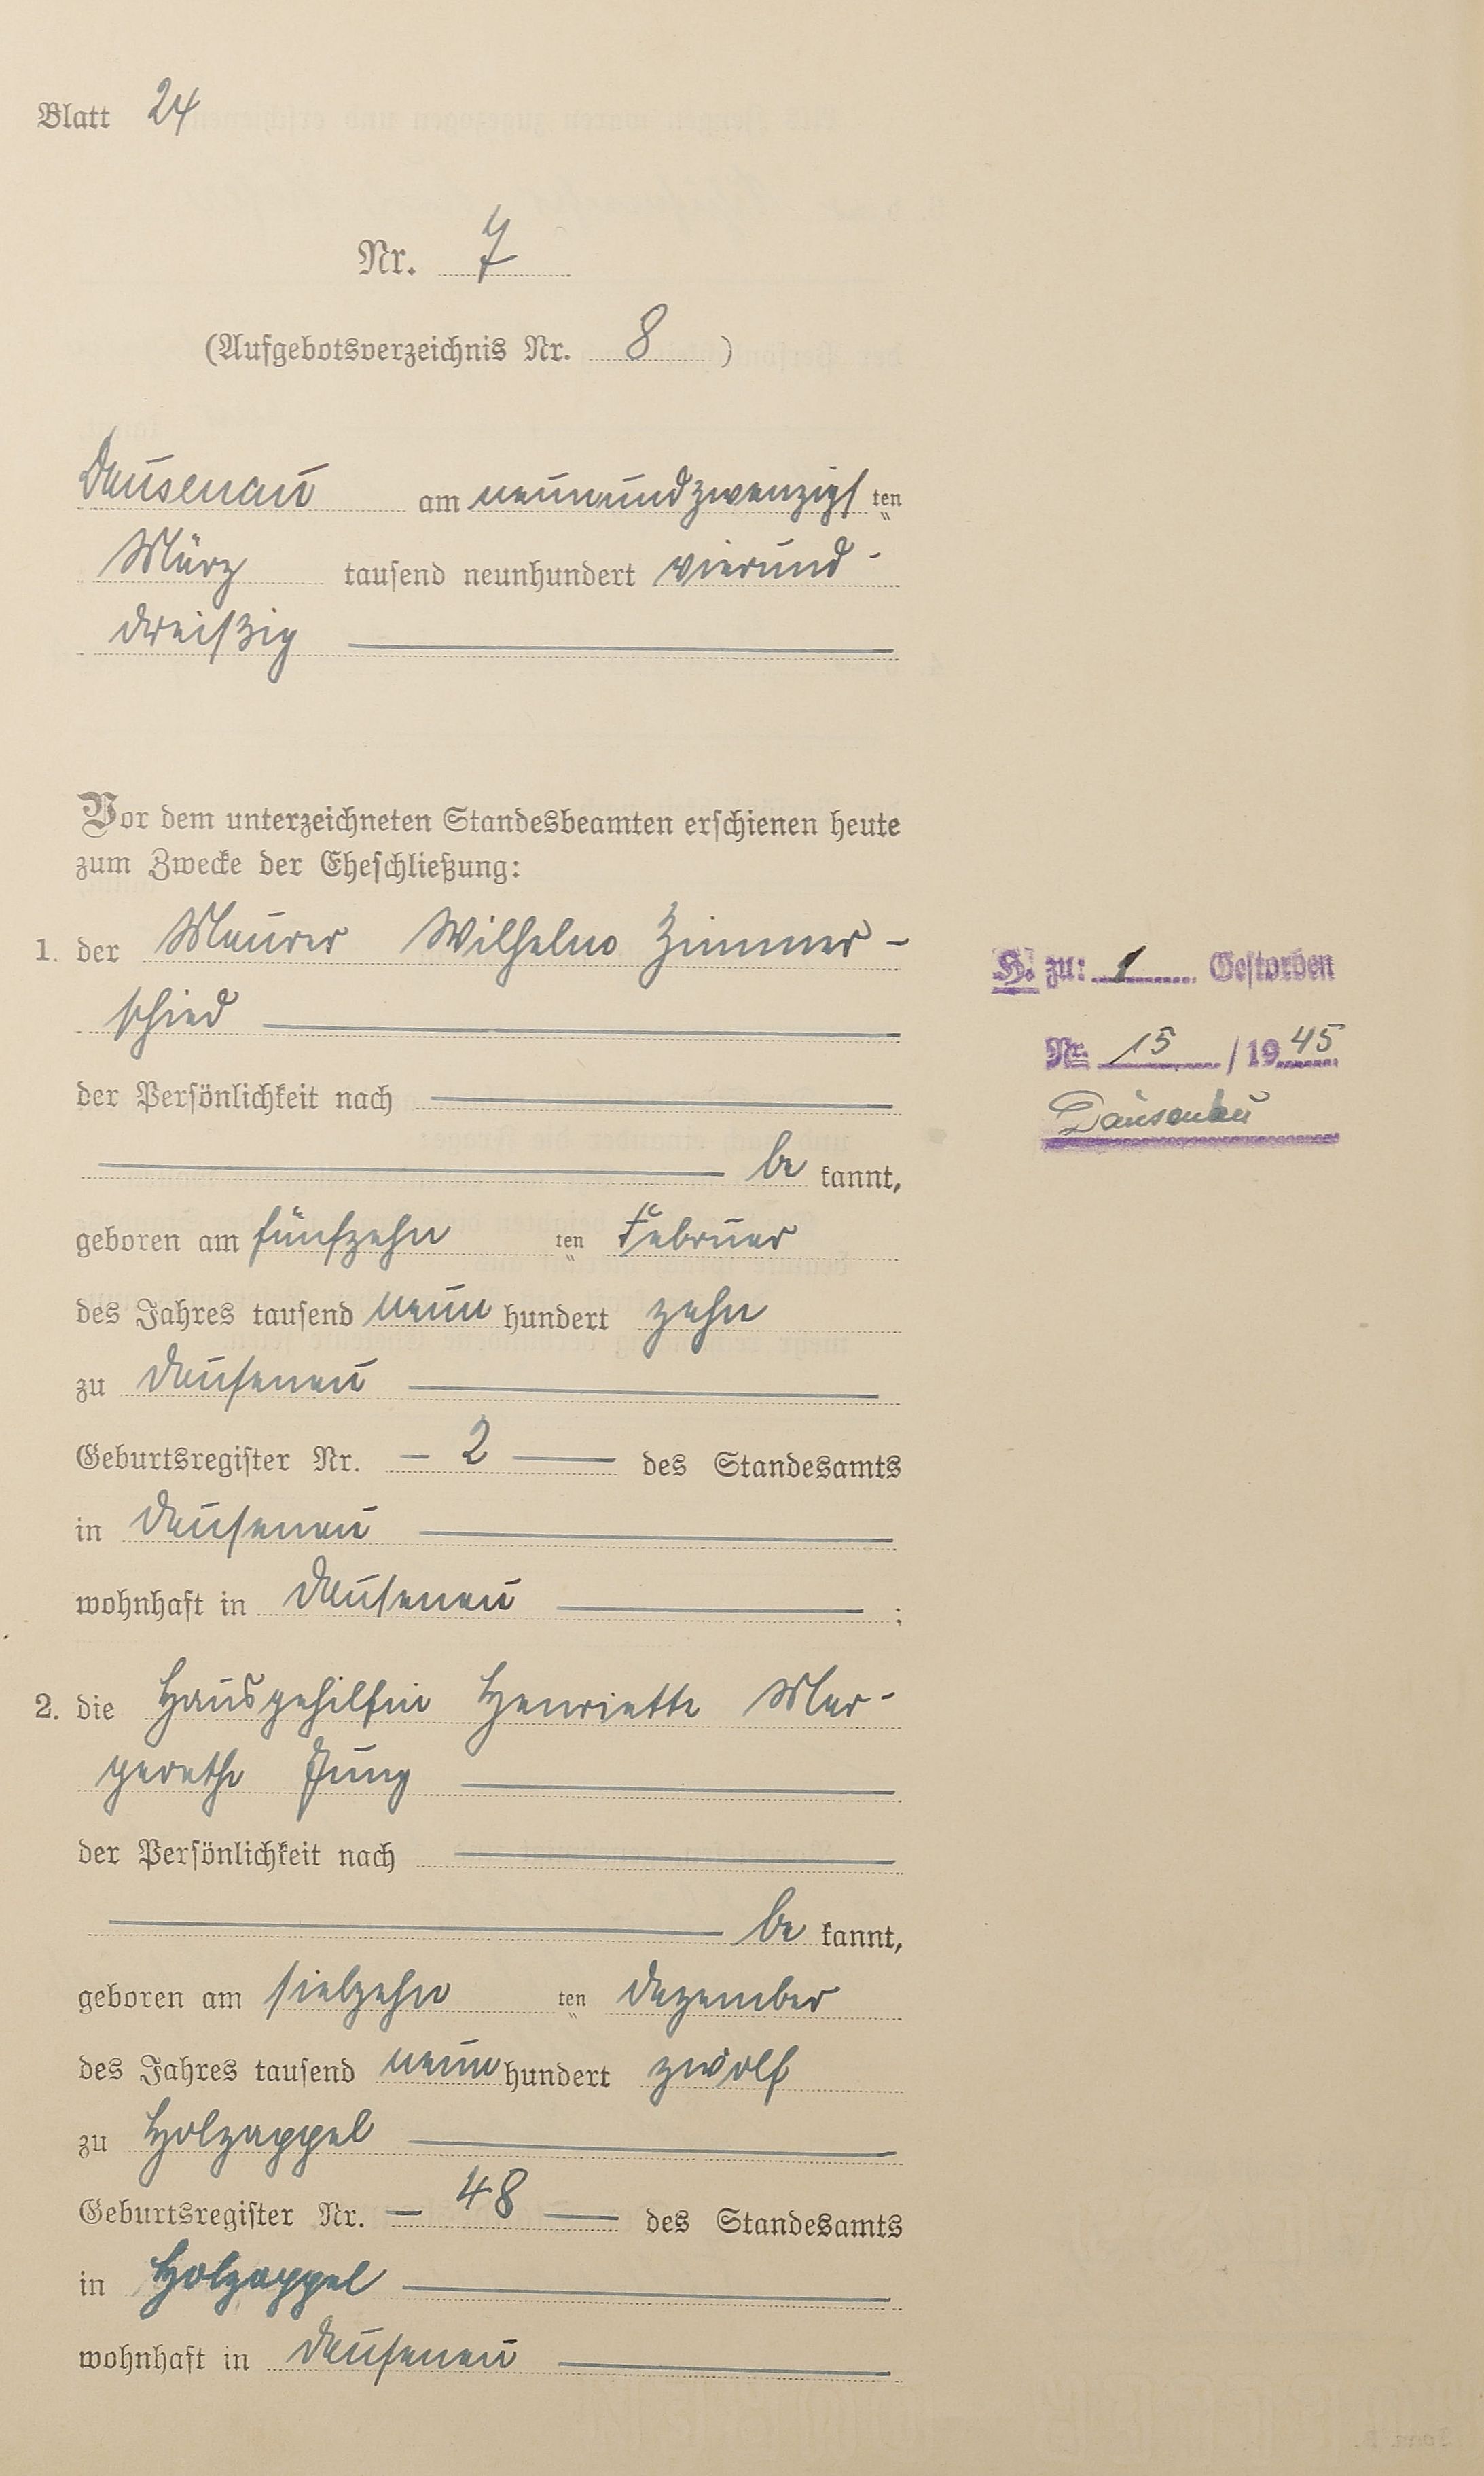 Blatt 24
Nr. 7
(Aufgebotsverzeichnis Nr. 8 )
Dausenau am neunundzwanzigsten
März tausend neunhundert vierund-
dreißig
Vor dem unterzeichneten Standesbeamten erschienen heute
zum Zwecke der Eheschließung:
1. der Maurer Wilhelm Zimmer-
schied
der Persönlichkeit nach
be kannt,
geboren am fünfzehn ten Februar
des Jahres tausend neun hundert zehn
zu Dausenau
Geburtsregister Nr. - 2 - des Standesamts
in Dausenau
wohnhaft in Dausenau ;
2. die Hausgehilfin Henriette Mar-
garethe Jung
der Persönlichkeit nach
be kannt,
geboren am siebzehn ten Dezember
des Jahres tausend neun hundert zwölf
zu Holzappel
Geburtsregister Nr. - 48 - des Standesamts
in Holzappel
wohnhaft in Dausenau
H. zu: 1 Gestorben
Nr. 15 / 1945
Dausenau